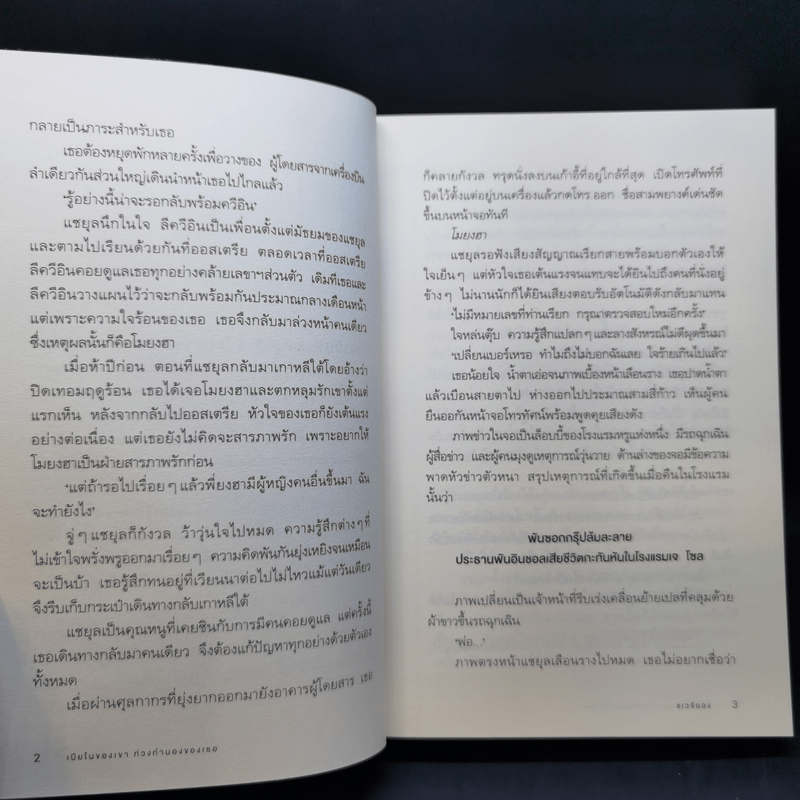 กลายเป็นภาระสำหรับเธอ
เธอต้องหยุดพักหลายครั้งเพื่อวางของ ผู้โดยสารจากเครื่องบิน
ลำเดียวกันส่วนใหญ่เดินนำหน้าเธอไปไกลแล้ว
"รู้อย่างนี้น่าจะรอกลับพร้อมควีอิน"
แชยุลนึกในใจ ลีควีอินเป็นเพื่อนตั้งแต่มัธยมของแชยุล
และตามไปเรียนด้วยกันที่ออสเตรีย ตลอดเวลาที่ออสเตรีย
ลีควีอินคอยดูแลเธอทุกอย่างคล้ายเลขาฯส่วนตัว เดิมทีเธอและ
ลีควีอินวางแผนไว้ว่าจะกลับพร้อมกันประมาณกลางเดือนหน้า
แต่เพราะความใจร้อนของเธอ เธอจึงกลับมาล่วงหน้าคนเดียว
ซึ่งเหตุผลนั้นก็คือโมยงฮา
เมื่อห้าปีก่อน ตอนที่แชยุลกลับมาเกาหลีใต้โดยอ้างว่า
ปิดเทอมฤดูร้อน เธอได้เจอโมยงฮาและตกหลุมรักเขาตั้งแต่
แรกเห็น หลังจากกลับไปออสเตรีย หัวใจของเธอก็ยังเต้นแรง
อย่างต่อเนื่อง แต่เธอยังไม่คิดจะสารภาพรัก เพราะอยากให้
โมยงฮาเป็นฝ่ายสารภาพรักก่อน
"แต่ถ้ารอไปเรื่อยๆ แล้วพี่ยงฮามีผู้หญิงคนอื่นขึ้นมา ฉัน
จะทำยังไง"
จู่ๆ แชยุลก็กังวล ว้าวุ่นใจไปหมด ความรู้สึกต่างๆ ที่
ไม่เข้าใจพรั่งพรูออกมาเรื่อยๆ ความคิดพันกันยุ่งเหยิงจนเหมือน
จะเป็นบ้า เธอรู้สึกทนอยู่ที่เวียนนาต่อไปไม่ไหวแม้แต่วันเดียว
จึงรีบเก็บกระเป๋าเดินทางกลับเกาหลีใต้
แชยุลเป็นคุณหนูที่เคยชินกับการมีคนคอยดูแล แต่ครั้งนี้
เธอเดินทางกลับมาคนเดียว จึงต้องแก้ปัญหาทุกอย่างด้วยตัวเอง
ทั้งหมด
เมื่อผ่านศุลกากรที่ยุ่งยากออกมายังอาคารผู้โดยสาร เธอ
2 เปียโนของเขา ท่วงทำนองของเธอ
ก็คลายกังวล ทรุดนั่งลงบนเก้าอี้ที่อยู่ใกล้ที่สุด เปิดโทรศัพท์ที่
ปิดไว้ตั้งแต่อยู่บนเครื่องแล้วกดโทร.ออก ชื่อสามพยางค์เด่นชัด
ขึ้นบนหน้าจอทันที
โมยงฮา
แชยุลรอฟังเสียงสัญญาณเรียกสายพร้อมบอกตัวเองให้
ใจเย็นๆ แต่หัวใจเธอเต้นแรงจนแทบจะได้ยินไปถึงคนที่นั่งอยู่
ข้างๆ ไม่นานนักก็ได้ยินเสียงตอบรับอัตโนมัติดังกลับมาแทน
"ไม่มีหมายเลขที่ท่านเรียก กรุณาตรวจสอบใหม่อีกครั้ง"
ใจหล่นตุ๊บ ความรู้สึกแปลกๆ และลางสังหรณ์ไม่ดีผุดขึ้นมา
"เปลี่ยนเบอร์เหรอ ทำไมถึงไม่บอกฉันเลย ใจร้ายเกินไปแล้ว"
เธอน้อยใจ น้ำตาเอ่อจนภาพเบื้องหน้าเลือนราง เธอปาดน้ำตา
แล้วเบือนสายตาไป ห่างออกไปประมาณสามสี่ก้าว เห็นผู้คน
ยืนออกันหน้าจอโทรทัศน์พร้อมพูดคุยเสียงดัง
ภาพข่าวในจอเป็นล็อบบี้ของโรงแรมหรูแห่งหนึ่ง มีรถฉุกเฉิน
ผู้สื่อข่าว และผู้คนมุงดูเหตุการณ์วุ่นวาย ด้านล่างของจอมีข้อความ
พาดหัวข่าวตัวหนา สรุปเหตุการณ์ที่เกิดขึ้นเมื่อคืนในโรงแรม
นั้นว่า
พันซอกกรุ๊ปล้มละลาย
ประธานพันอินซอลเสียชีวิตกะทันหันในโรงแรมเจ โซล
ภาพเปลี่ยนเป็นเจ้าหน้าที่รีบเร่งเคลื่อนย้ายเปลที่คลุมด้วย
ผ้าขาวขึ้นรถฉุกเฉิน
"พ่อ..."
ภาพตรงหน้าแชยุลเลือนรางไปหมด เธอไม่อยากเชื่อว่า
3